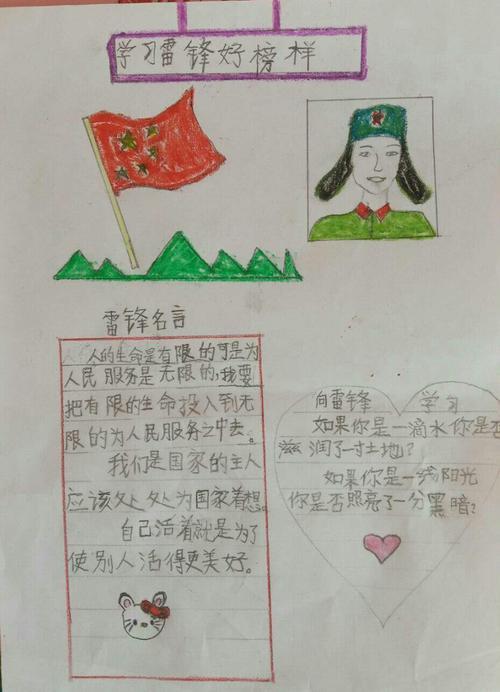 学习雷锋好榜样
雷锋名言
人的生命是有限的可是为
人民服务是无限的,我要
把有限的生命投入到无
限的为人民服务之中去。
我们是国家的主人
应该处处为国家着想。
自己活着就是为了
使别人活得更美好。
向雷锋 学习
如果你是一滴水你是否
滋润了一寸土地?
如果你是一线阳光
你是否照亮了一分黑暗?